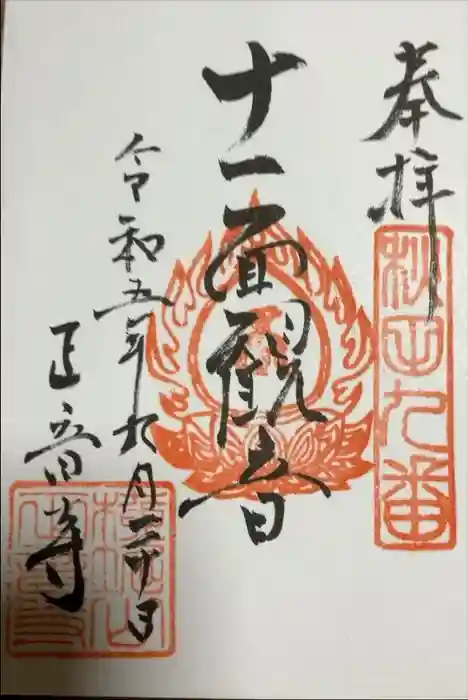 奉拝
秋田九番
十一面観音
令和五年九月三十日
正音寺